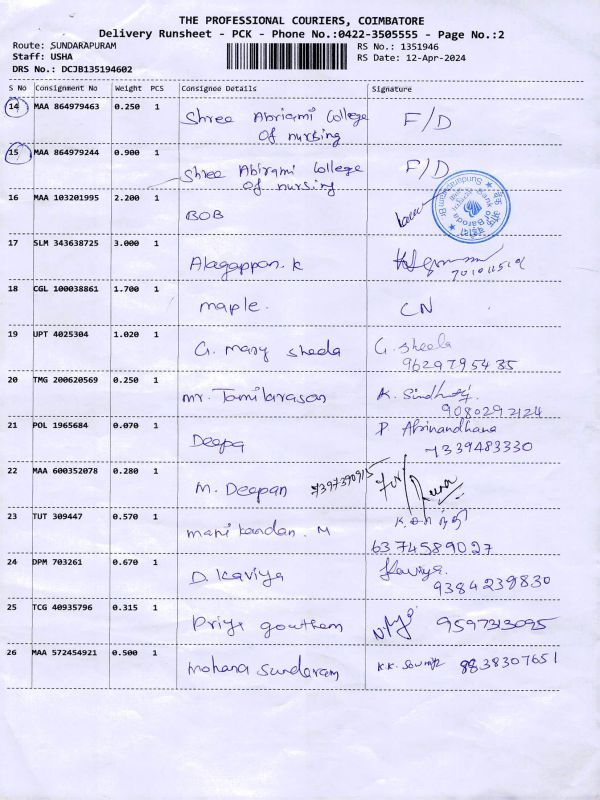 THE PROFESSIONAL COURIERS, COIMBATORE
Delivery Runsheet - PCK - Phone No.:0422-3505555 - Page No.:2
Route: SUNDARAPURAM
RS No.: 1351946
Staff: USHA
RS Date: 12-Apr-2024
DRS No.: DCJB135194602
S No Consignment No Weight PCS Consignee Details Signature
14 MAA 864979463 0.250 1 Shree Abirami College F/D
Of nursing
15 MAA 864979244 0.900 1 Shree Abirami College F/D
Of nursing
16 MAA 103201995 2.200 1 BOB
Bank of Baroda
17 SLM 343638725 3.000 1 Alagappan. K
18 CGL 100038861 1.700 1 maple. CN
19 UPT 4025304 1.020 1 G. mary sheela G. sheela
9629795435
20 TMG 200620569 0.250 1 mr. Tamilarasan K. Sindhu
9080292124
21 POL 1965684 0.070 1 Deepa P Abinandhana
7339483330
22 MAA 600352078 0.280 1 M. Deepan 7397390915
23 TUT 309447 0.570 1 mani kandan. M
6374589027
24 DPM 703261 0.670 1 D. Kaviya Kaviya.
9384239830
25 TCG 40935796 0.315 1 Priya goutham 9597313095
26 MAA 572454921 0.500 1 mohana Sundaram K.K. Sowmiya 8838307651